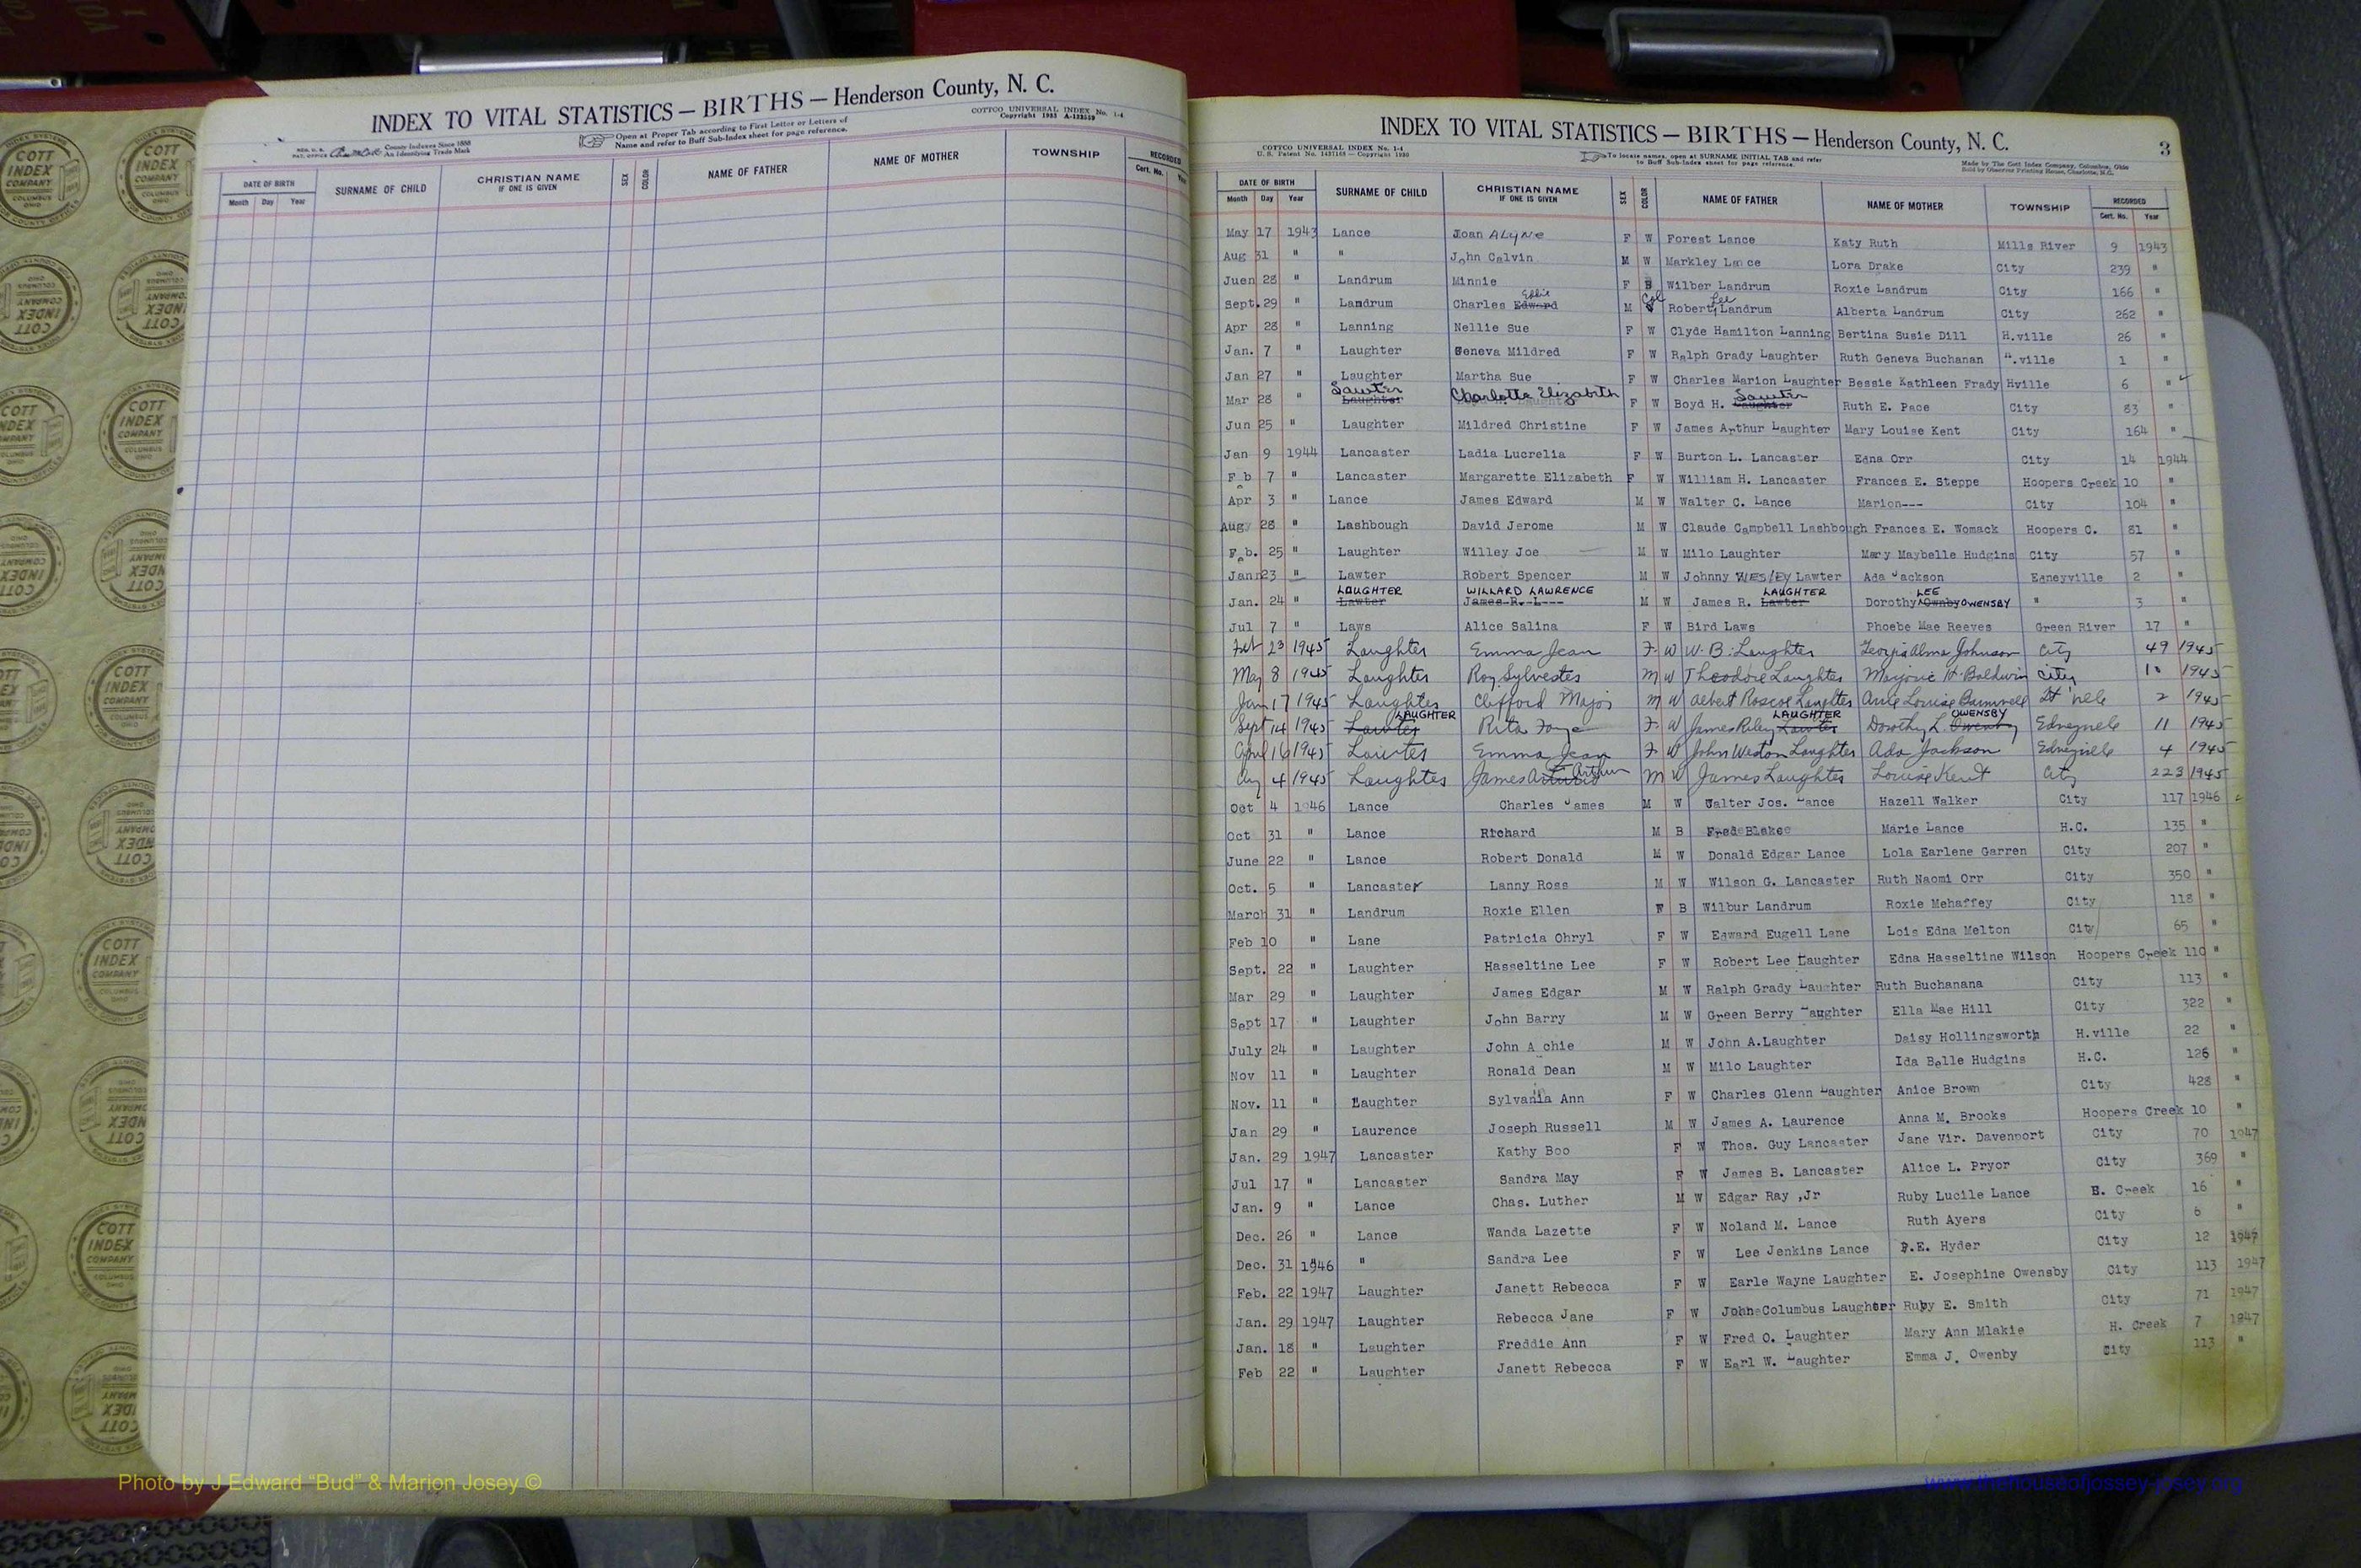 INDEX TO VITAL STATISTICS — BIRTHS — Henderson County, N. C.
COTTCO UNIVERSAL INDEX No. 1-4
Open at Proper Tab according to First Letter or Letters of
Name and refer to Buff Sub-Index sheet for page reference.
County Indexes Since 1888
An Identifying Trade Mark
DATE OF BIRTH SURNAME OF CHILD CHRISTIAN NAME IF ONE IS GIVEN SEX COLOR NAME OF FATHER NAME OF MOTHER TOWNSHIP RECORDED
Month Day Year Cert. No.
INDEX TO VITAL STATISTICS — BIRTHS — Henderson County, N. C. 3
COTTCO UNIVERSAL INDEX No. 1-4
U. S. Patent No. 1431168 — Copyright 1930
To locate names, open at SURNAME INITIAL TAB and refer
to Buff Sub-Index sheet for page reference.
Made by The Cott Index Company, Columbus, Ohio
Sold by Observer Printing House, Charlotte, N.C.
DATE OF BIRTH SURNAME OF CHILD CHRISTIAN NAME IF ONE IS GIVEN SEX COLOR NAME OF FATHER NAME OF MOTHER TOWNSHIP RECORDED
Month Day Year Cert. No. Year
May 17 1943 Lance Joan ALYNE F W Forest Lance Katy Ruth Mills River 9 1943
Aug 31 " " John Calvin M W Markley Lance Lora Drake City 239 "
Juen 28 " Landrum Minnie F B Wilber Landrum Roxie Landrum City 166 "
Sept. 29 " Landrum Charles Edward Eddie M Col Robert Lee Landrum Alberta Landrum City 262 "
Apr 28 " Lanning Nellie Sue F W Clyde Hamilton Lanning Bertina Susie Dill H.ville 26 "
Jan. 7 " Laughter Geneva Mildred F W Ralph Grady Laughter Ruth Geneva Buchanan ".ville 1 "
Jan 27 " Laughter Martha Sue F W Charles Marion Laughter Bessie Kathleen Frady Hville 6 "
Mar 28 " Laughter Sawter Charlotte Elizabeth F W Boyd H. Laughter Sawter Ruth E. Pace City 83 "
Jun 25 " Laughter Mildred Christine F W James Arthur Laughter Mary Louise Kent City 164 "
Jan 9 1944 Lancaster Ladia Lucrelia F W Burton L. Lancaster Edna Orr City 14 1944
Feb 7 " Lancaster Margarette Elizabeth F W William H. Lancaster Frances E. Steppe Hoopers Creek 10 "
Apr 3 " Lance James Edward M W Walter C. Lance Marion--- City 104 "
Aug 28 " Lashbough David Jerome M W Claude Campbell Lashbough Frances E. Womack Hoopers C. 81 "
Feb. 25 " Laughter Willey Joe M W Milo Laughter Mary Maybelle Hudgins City 57 "
Jan 23 " Lawter Robert Spencer M W Johnny WESLEY Lawter Ada Jackson Edneyville 2 "
Jan. 24 " Lawter LAUGHTER James R. L--- WILLARD LAWRENCE M W James R. Lawter LAUGHTER Dorothy LEE Ownby OWENSBY " 3 "
Jul 7 " Laws Alice Salina F W Bird Laws Phoebe Mae Reeves Green River 17 "
Feb 23 1945 Laughter Emma Jean F. W W. B. Laughter Georgia Alma Johnson City 49 1945
May 8 1945 Laughter Roy Sylvester M W Theodore Laughter Marjorie H. Baldwin City 10 1945
Jan 17 1945 Laughter Clifford Major M W Albert Roscoe Laughter Annie Louise Barnwell H'ville 2 1945
Sept 14 1945 Lawter LAUGHTER Rita Faye F. W James Riley Lawter LAUGHTER Dorothy L. Owenby OWENSBY Edneyville 11 1945
April 16 1945 Lawter Emma Jean F W John Weston Laughter Ada Jackson Edneyville 4 1945
Aug 4 1945 Laughter James Arthur M W James Laughter Louise Kent City 223 1945
Oct 4 1946 Lance Charles James M W Walter Jos. Lance Hazell Walker City 117 1946
Oct 31 " Lance Richard M B Fred Blake Marie Lance H.C. 135 "
June 22 " Lance Robert Donald M W Donald Edgar Lance Lola Earlene Garren City 207 "
Oct. 5 " Lancaster Lanny Ross M W Wilson G. Lancaster Ruth Naomi Orr City 350 "
March 31 " Landrum Roxie Ellen F B Wilbur Landrum Roxie Mehaffey City 118 "
Feb 10 " Lane Patricia Ohryl F W Edward Eugell Lane Lois Edna Melton City 65 "
Sept. 22 " Laughter Hasseltine Lee F W Robert Lee Laughter Edna Hasseltine Wilson Hoopers Creek 110 "
Mar 29 " Laughter James Edgar M W Ralph Grady Laughter Ruth Buchanana City 113 "
Sept 17 " Laughter John Barry M W Green Berry Laughter Ella Mae Hill City 322 "
July 24 " Laughter John A chie M W John A.Laughter Daisy Hollingsworth H.ville 22 "
Nov 11 " Laughter Ronald Dean M W Milo Laughter Ida Belle Hudgins H.C. 126 "
Nov. 11 " Laughter Sylvania Ann F W Charles Glenn Laughter Anice Brown City 428 "
Jan 29 " Laurence Joseph Russell M W James A. Laurence Anna M. Brooks Hoopers Creek 10 "
Jan. 29 1947 Lancaster Kathy Boo F W Thos. Guy Lancaster Jane Vir. Davenport City 70 1947
Jul 17 " Lancaster Sandra May F W James B. Lancaster Alice L. Pryor City 369 "
Jan. 9 " Lance Chas. Luther M W Edgar Ray ,Jr Ruby Lucile Lance B. Creek 16 "
Dec. 26 " Lance Wanda Lazette F W Noland M. Lance Ruth Ayers City 6 "
Dec. 31 1946 " Sandra Lee F W Lee Jenkins Lance P.E. Hyder City 12 1947
Feb. 22 1947 Laughter Janett Rebecca F W Earle Wayne Laughter E. Josephine Owensby City 113 1947
Jan. 29 1947 Laughter Rebecca Jane F W John Columbus Laughter Ruby E. Smith City 71 1947
Jan. 18 " Laughter Freddie Ann F W Fred O. Laughter Mary Ann Mlakie H. Creek 7 1947
Feb 22 " Laughter Janett Rebecca F W Earl W. Laughter Emma J. Owenby City 113 "
Photo by J Edward “Bud” & Marion Josey ©
www.thehouseofjossey-josey.org
COTT INDEX COMPANY COLUMBUS OHIO